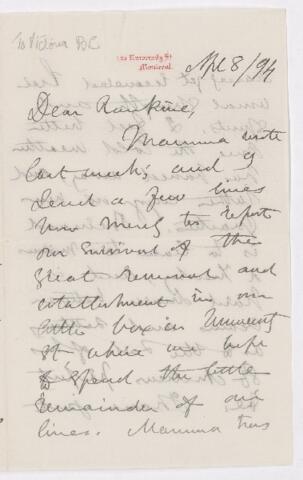 To Victoria BC
University St
Montreal.
Apl 8/94
Dear Rankine,
Mamma wrote
last week, and I
send a few lines
now merely to report
our survival of the
great removal and
establishment in our
little box in University
St where we hope
to spend the little
remainder of our
lives. Mamma has